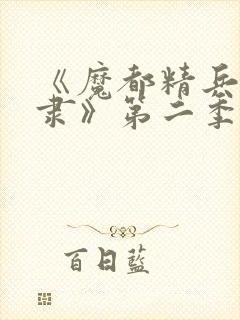 《魔都精兵
隶》第二季
百日蓝